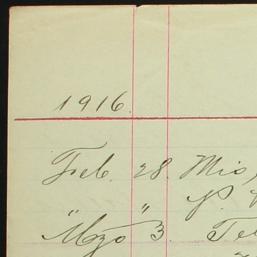 1916.
Feb. 28. Mis
" "
Mzo 3. Te